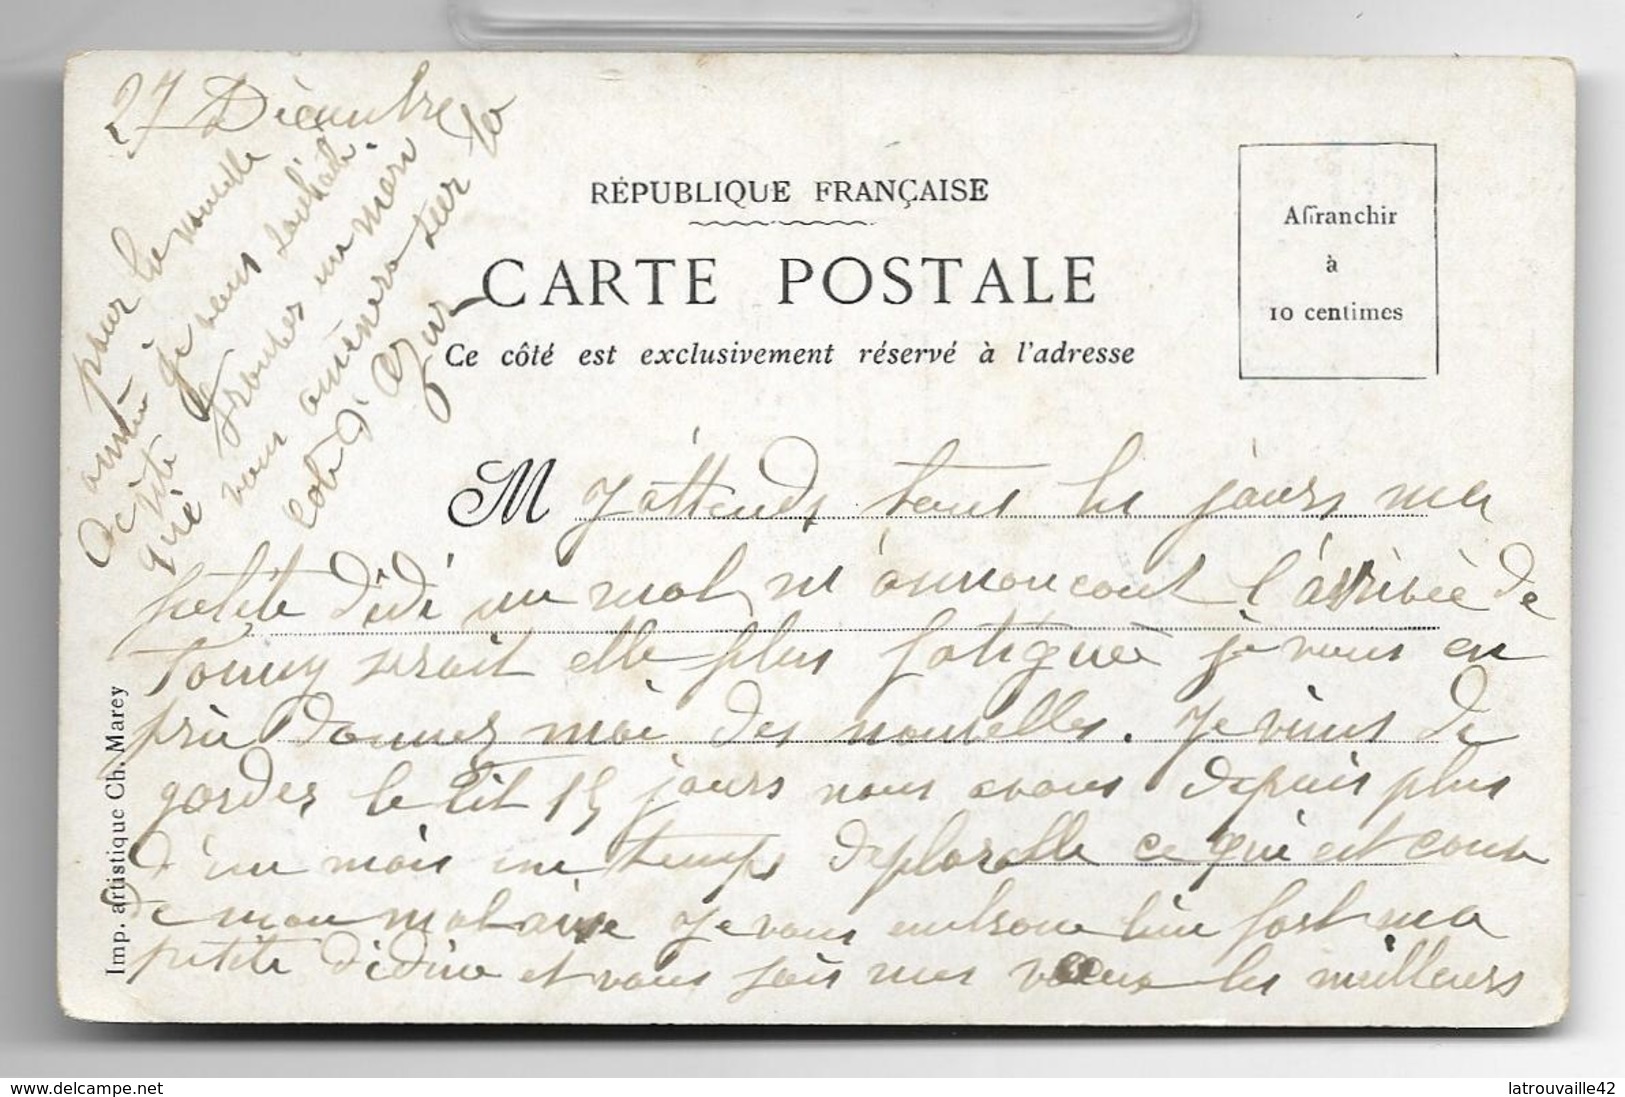 27 Décembre
RÉPUBLIQUE FRANÇAISE
CARTE POSTALE
Ce côté est exclusivement réservé à l'adresse
Affranchir
à
10 centimes
M J'attends tous les jours ma
petite Didi un mot m'annoncant l'arrivée de
Tonny serait elle plus fatiguée je vous en
prie donnez moi des nouvelles. Je viens de
garder le lit 15 jours nous avons depuis plus
d'un mois un temps deplorable ce qui est cause
de mon malaise Je vous embrasse bien fort ma
petite didine et vous fais mes voeux les meilleurs
pour la nouvelle
année je vous souhaite
de vite trouver un mari
qui vous amènera sur la
cote d'Azur
Imp. artistique Ch. Marey
www.delcampe.net
latrouvaille42